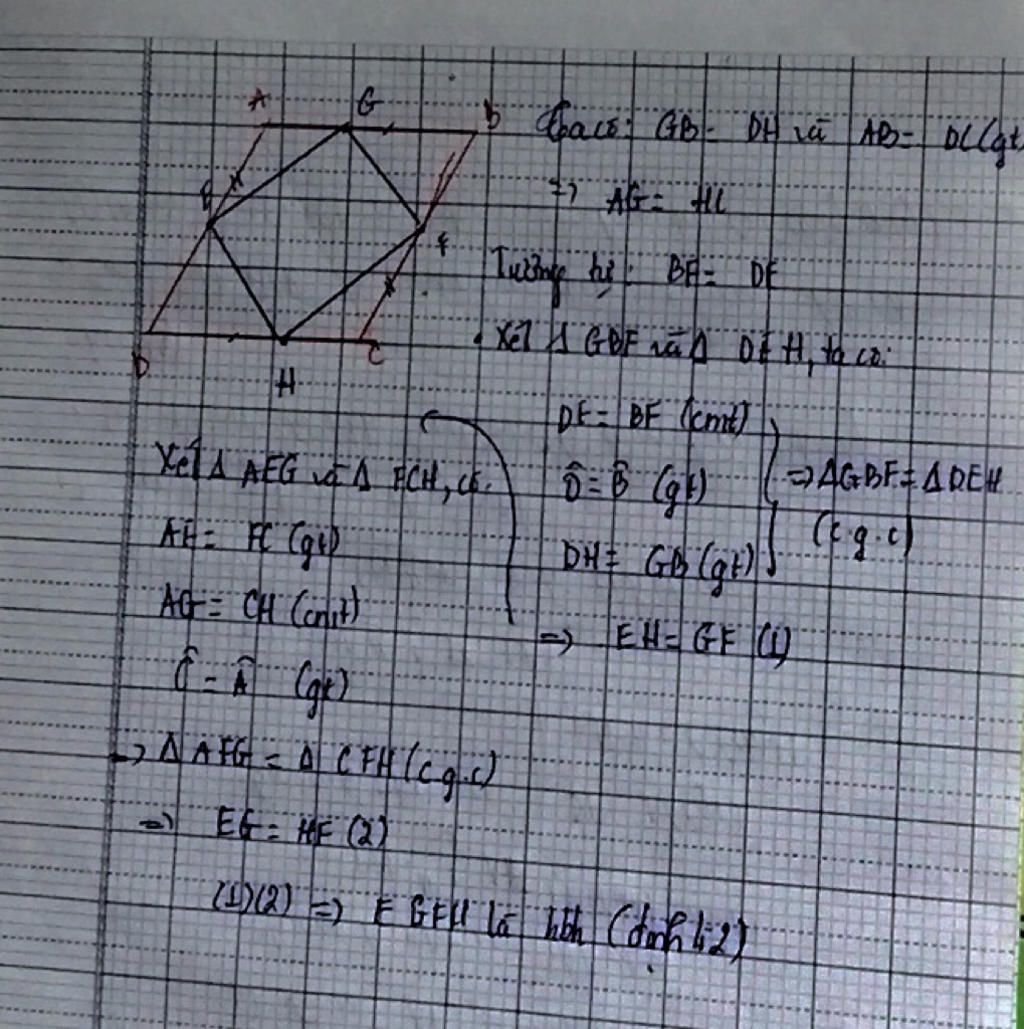 A G B
E F
D H C
Ta có: GB = DH và AB = DC (gt
=> AG = HC
Tương tự: BF = DE
• Xét Δ GBF và Δ DEH, ta có:
DE = BF (cmt)
D̂ = B̂ (gt)
DH = GB (gt)
=> ΔGBF = ΔDEH
(c.g.c)
=> EH = GF (1)
Xét Δ AEG và Δ FCH, có:
AE = FC (gt)
AG = CH (cmt)
Ĉ = Â (gt)
=> Δ AEG = Δ CFH (c.g.c)
=> EG = HF (2)
(1)(2) => EGFH là hbh (định lí 2)